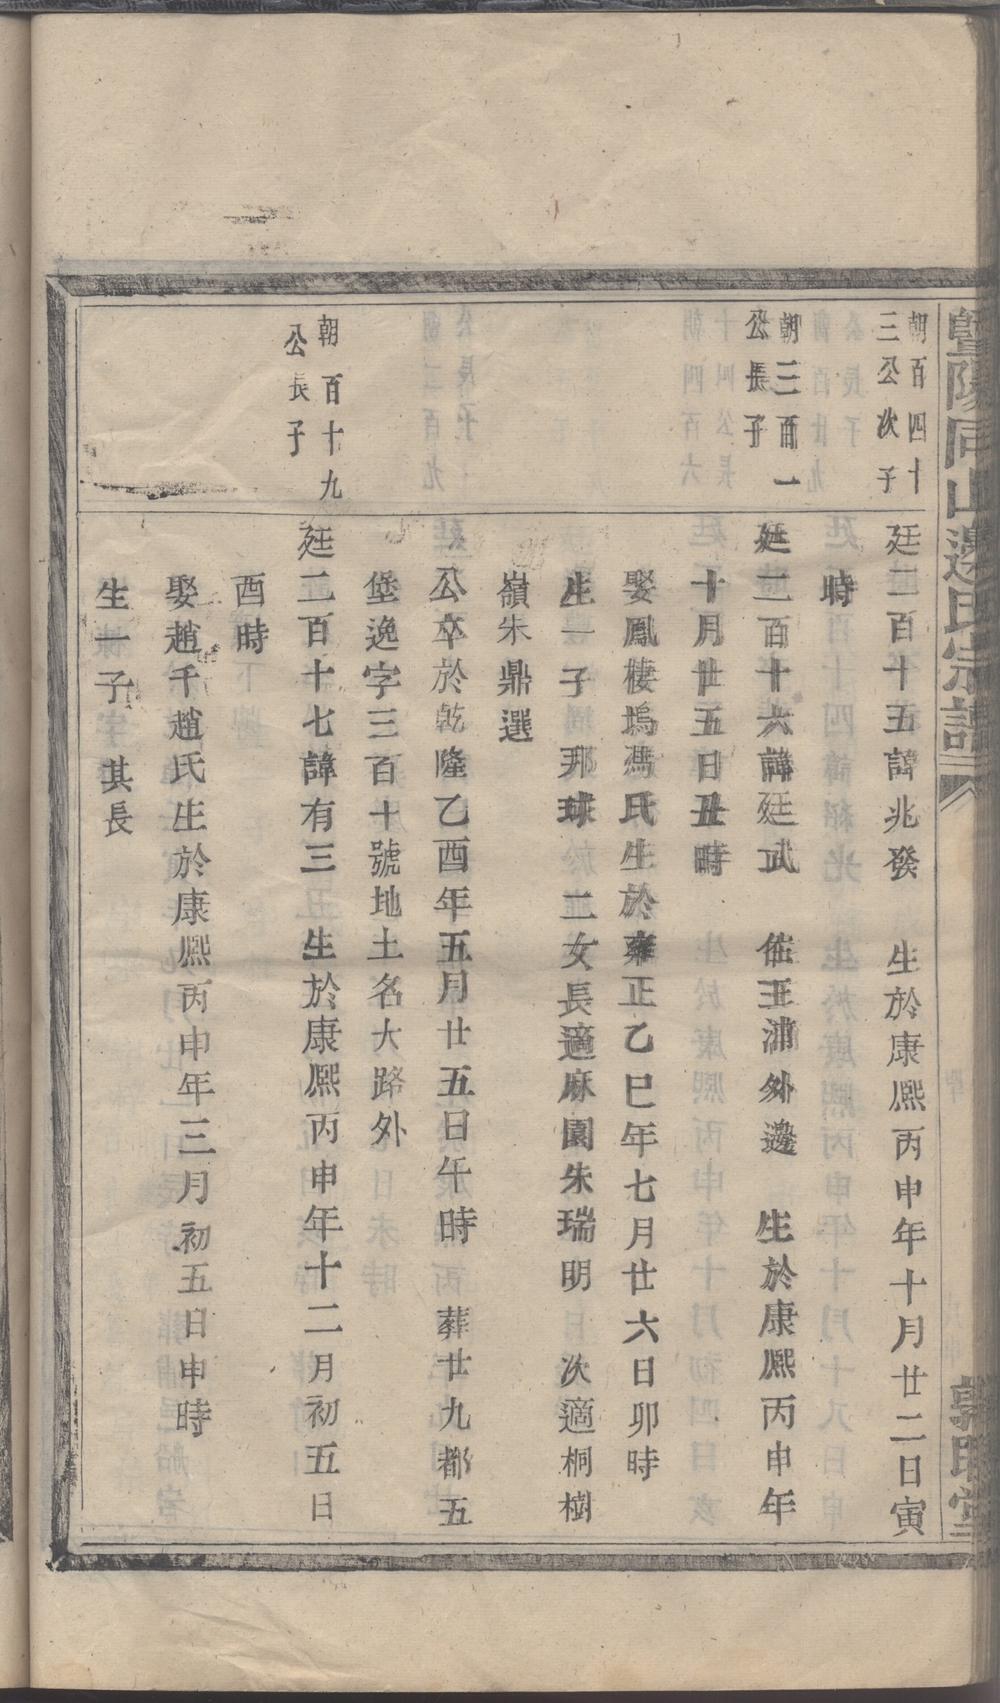 暨陽同山邊氏宗譜
敦睦堂
朝百四十
三公次子
廷二百十五諱兆發 生於康熙丙申年十月廿二日寅
時
朝三百一
公長子
廷二百十六諱廷武 偹王浦外邊 生於康熙丙申年
十月廿五日丑時
娶鳳棲塢馮氏生於雍正乙巳年七月廿六日卯時
生一子 邦球 二女長適麻園朱瑞明 次適桐樹
嶺朱鼎選
公卒於乾隆乙酉年五月廿五日午時 葬廿九都五
堡逸字三百十號地土名大路外
朝百十九
公長子
廷二百十七諱有三 生於康熙丙申年十二月初五日
酉時
娶趙千趙氏生於康熙丙申年三月初五日申時
生一子 其長